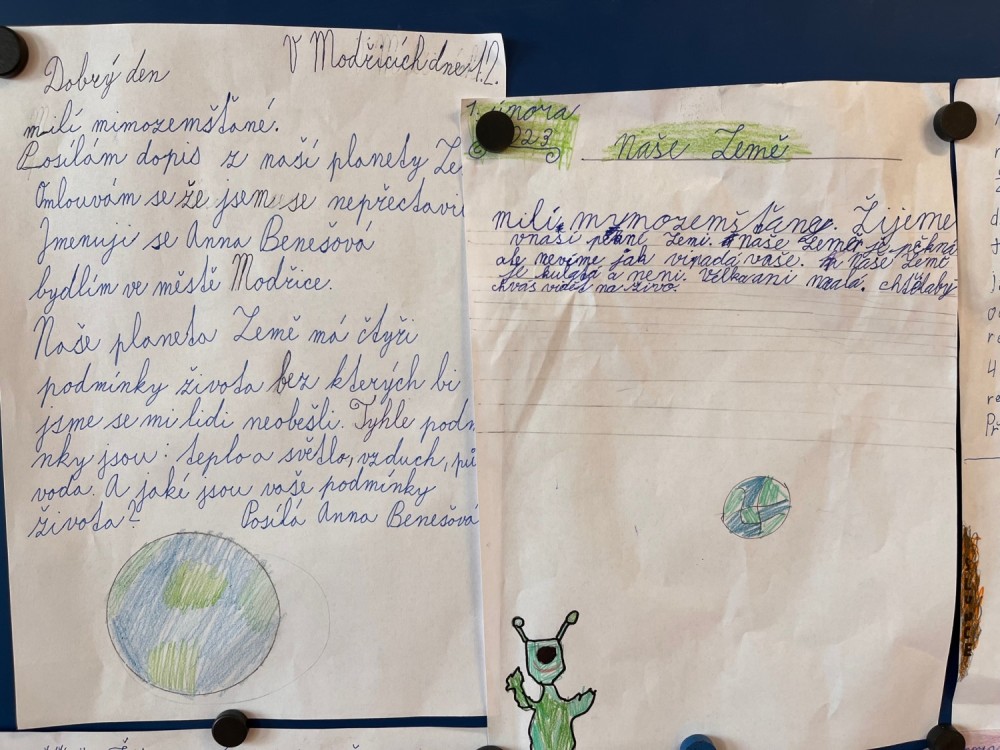 V Modřicích dne 1.2.
Dobrý den
milí mimozemšťané.
Posílám dopis z naší planety Ze
Omlouvám se že jsem se nepřectavi
Jmenuji se Anna Benešová
bydlím ve městě Modřice.
Naše planeta Země má čtyři
podmínky života bez kterých bi
jsme se mi lidi neobešli. Tyhle podm
nky jsou: teplo a světlo, vzduch, pů
voda. A jakí jsou vaše podmínky
života? Posílá Anna Benešová
1. února
023
Naše Země
milí mymozemšťané. Žijeme
vnaší pěkné Zemi. Naše Země je pěkná
ale nevíme jak vipadá vaše. Naše Země
je kulatá a neni. velká ani malá. chtělaby
chvás vidět na živo.